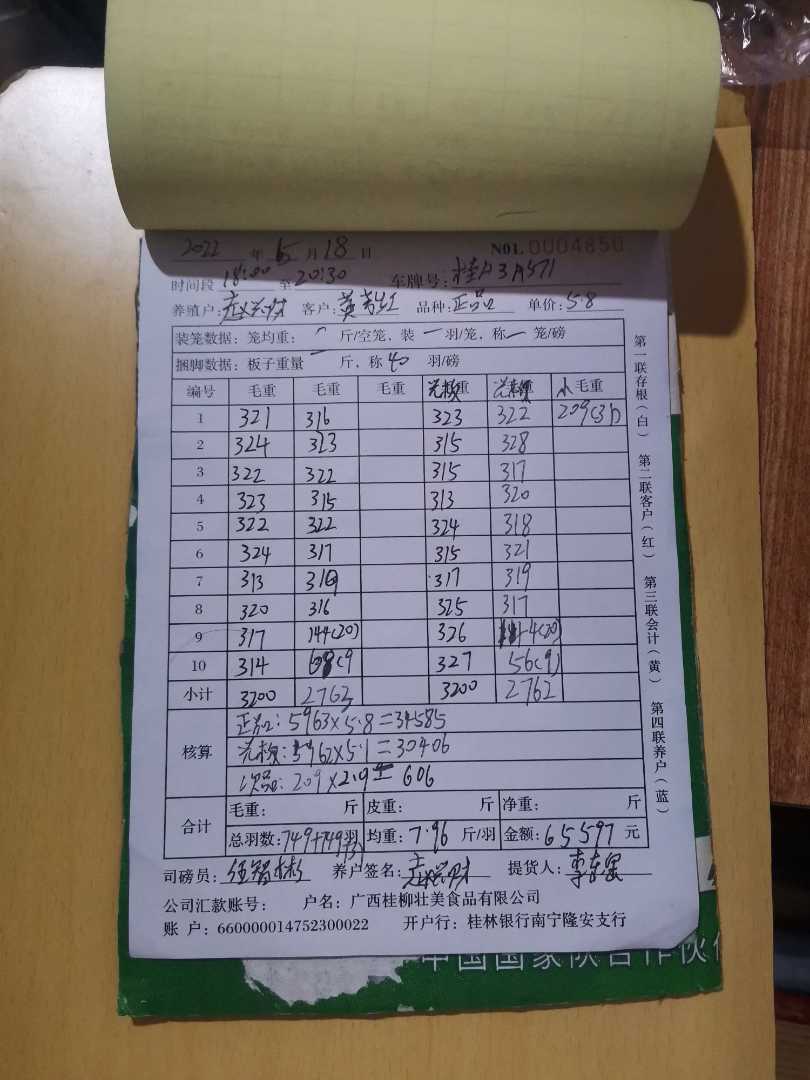 2022 年 5 月 18 日 NO1. 0004850
时间段 18:00 至 20:30 车牌号: 桂A3A571
养殖户: 客户: 黄 品种: 正品 单价: 5.8
装笼数据: 笼均重: 斤/空笼, 装 一 羽/笼, 称 一 笼/磅
捆脚数据: 板子重量 一 斤, 称 40 羽/磅
编号 毛重 毛重 毛重 光板 毛重
1 321 316 323 322 209(31)
2 324 313 315 328
3 322 322 315 317
4 323 315 313 320
5 322 322 324 318
6 324 317 315 321
7 313 317 319
8 320 316 325 317
9 317 144(20) 326 144(20)
10 314 68(9 327 56(9)
小计 3200 2763 3200 2762
核算 正品: 5963×5.8=34585
光板: 5962×5.1=30406
次品: 209×2.9= 606
合计 毛重: 斤 皮重: 斤 净重: 斤
总羽数: 749+749羽 均重: 7.96 斤/羽 金额: 65597 元
司磅员: 养户签名: 提货人: 李
公司汇款账号: 户名: 广西桂柳壮美食品有限公司
账 户: 660000014752300022 开户行: 桂林银行南宁隆安支行
第一联存根(白) 第二联客户(红) 第三联会计(黄) 第四联养户(蓝)
中国国家队合作伙伴